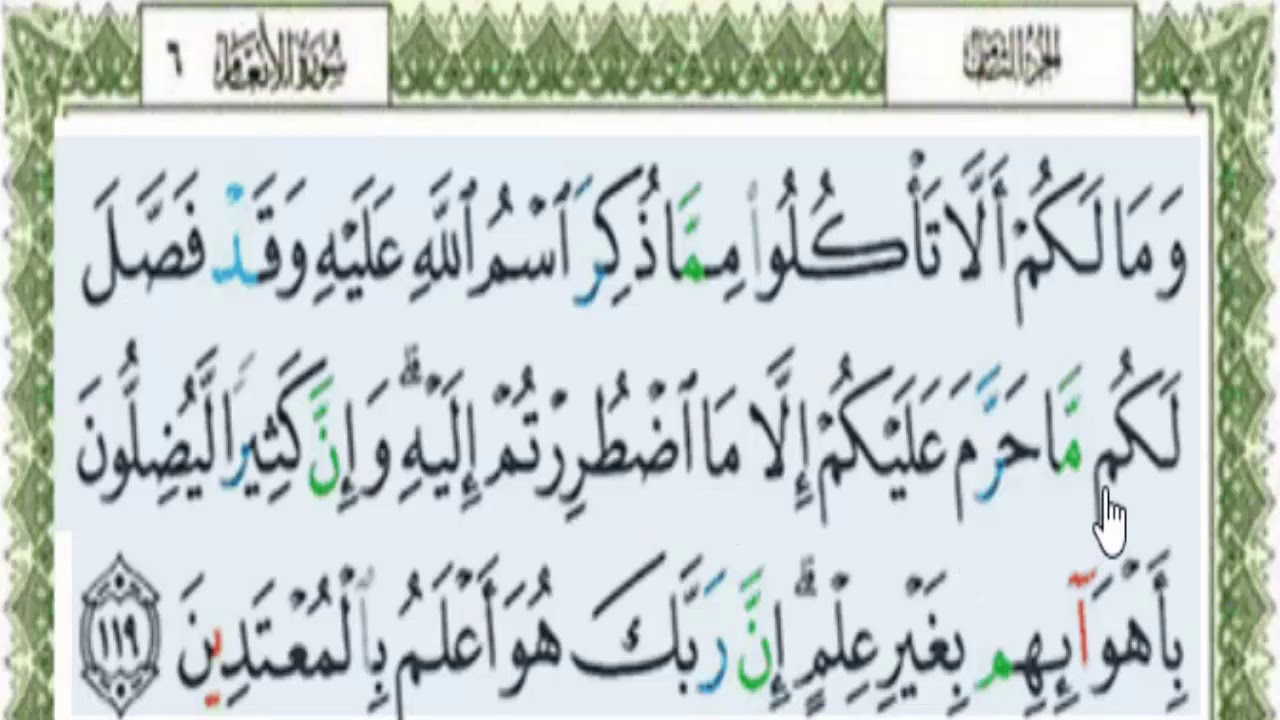 الجزء الثامن
سورة الأنعام ٦
وَمَا لَكُمْ أَلَّا تَأْكُلُوا۟ مِمَّا ذُكِرَ ٱسْمُ ٱللَّهِ عَلَيْهِ وَقَدْ فَصَّلَ
لَكُم مَّا حَرَّمَ عَلَيْكُمْ إِلَّا مَا ٱضْطُرِرْتُمْ إِلَيْهِ ۗ وَإِنَّ كَثِيرًا لَّيُضِلُّونَ
بِأَهْوَآئِهِم بِغَيْرِ عِلْمٍ ۗ إِنَّ رَبَّكَ هُوَ أَعْلَمُ بِٱلْمُعْتَدِينَ ١١٩